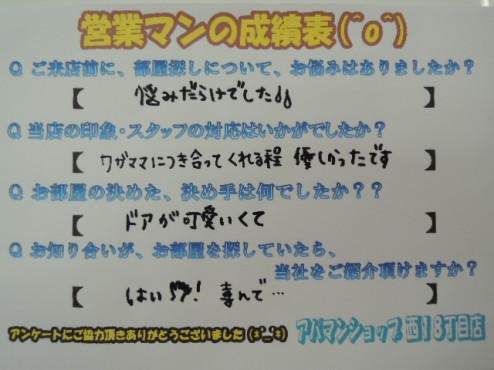 営業マンの成績表(^o^)
Q ご来店前に、部屋探しについて、お悩みはありましたか？
【 悩みだらけでした 】
Q 当店の印象・スタッフの対応はいかがでしたか？
【 ワガママにつき合ってくれる程 優しかったです 】
Q お部屋の決めた、決め手は何でしたか？？
【 ドアが可愛いくて 】
Q お知り合いが、お部屋を探していたら、
当社をご紹介頂けますか？
【 はい! 喜んで… 】
アンケートにご協力頂きありがとうございました
アパマンショップ 西18丁目店